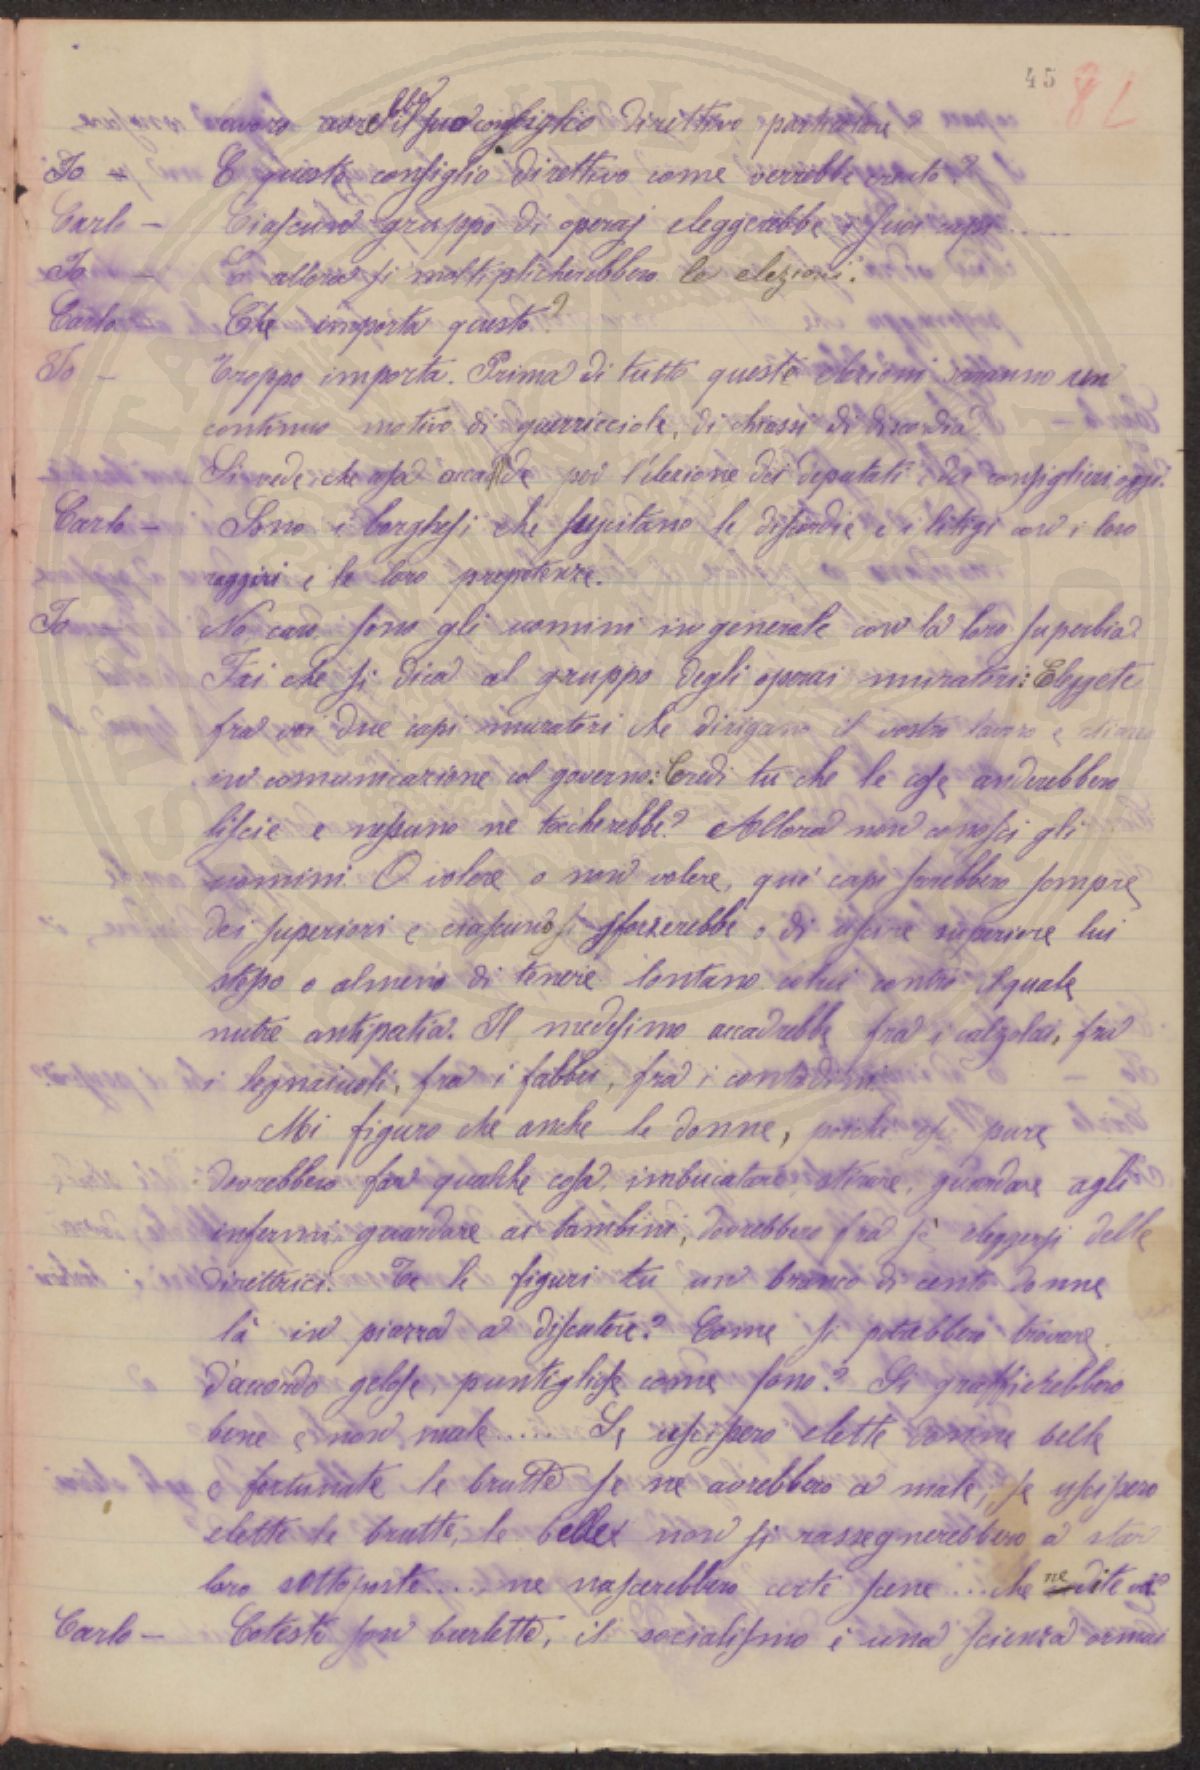 45 82
lavoro avrebbe il suo consiglio direttivo particolare
Io — E questo consiglio direttivo come verrebbe creato?
Carlo — Ciascun gruppo di operaj eleggerebbe i suoi capi.....
Io — E allora si moltiplicherebbero le elezioni.
Carlo — Che importa questo?
Io — Troppo importa. Prima di tutto queste elezioni saranno un
continuo motivo di guerricciole, di chiassi di discordia.
Si vede che cosa accade per l'elezione dei deputati e dei consiglieri oggi.
Carlo — Sono i borghesi che suscitano le discordie e i litigi con i loro
raggiri e le loro prepotenze.
Io — No caro, sono gli uomini in generale con la loro superbia.
Fai che si dica al gruppo degli operai muratori: Eleggete
fra voi due capi muratori che dirigano il vostro lavoro e stiano
in comunicazione col governo: Credi tu che le cose anderebbero
liscie e nessuno ne toccherebbe? Allora non conosci gli
uomini. O volere o non volere, quei capi sarebbero sempre
dei superiori e ciascuno si sforzerebbe o di uscire superiore lui
stesso o almeno di tenere lontano colui contro il quale
nutre antipatia. Il medesimo accadrebbe fra i calzolai, fra
i legnaiuoli, fra i fabbri, fra i contadini.
Mi figuro che anche le donne, poiché esse pure
dovrebbero far qualche cosa, imbucatare, stirare, guardare agli
infermi, guardare ai bambini, dovrebbero fra sè eleggersi delle
direttrici. Te le figuri tu un branco di cento donne
là in piazza a discutere? Come si potrebbero trovare
d'accordo gelose, puntigliose come sono? Si graffierebbero
bene e non male..... Se uscissero elette donne belle
e fortunate le brutte se ne avrebbero a male; se uscissero
elette le brutte, le belle non si rassegnerebbero a star
loro sottoposte..... ne nascerebbero certe scene... che ne dite voi?
Carlo — Coteste son burlette, il socialismo è una scienza ormai